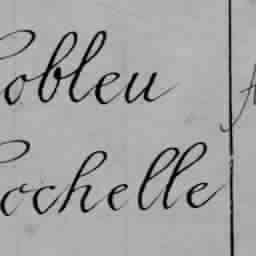 obleu
ochelle